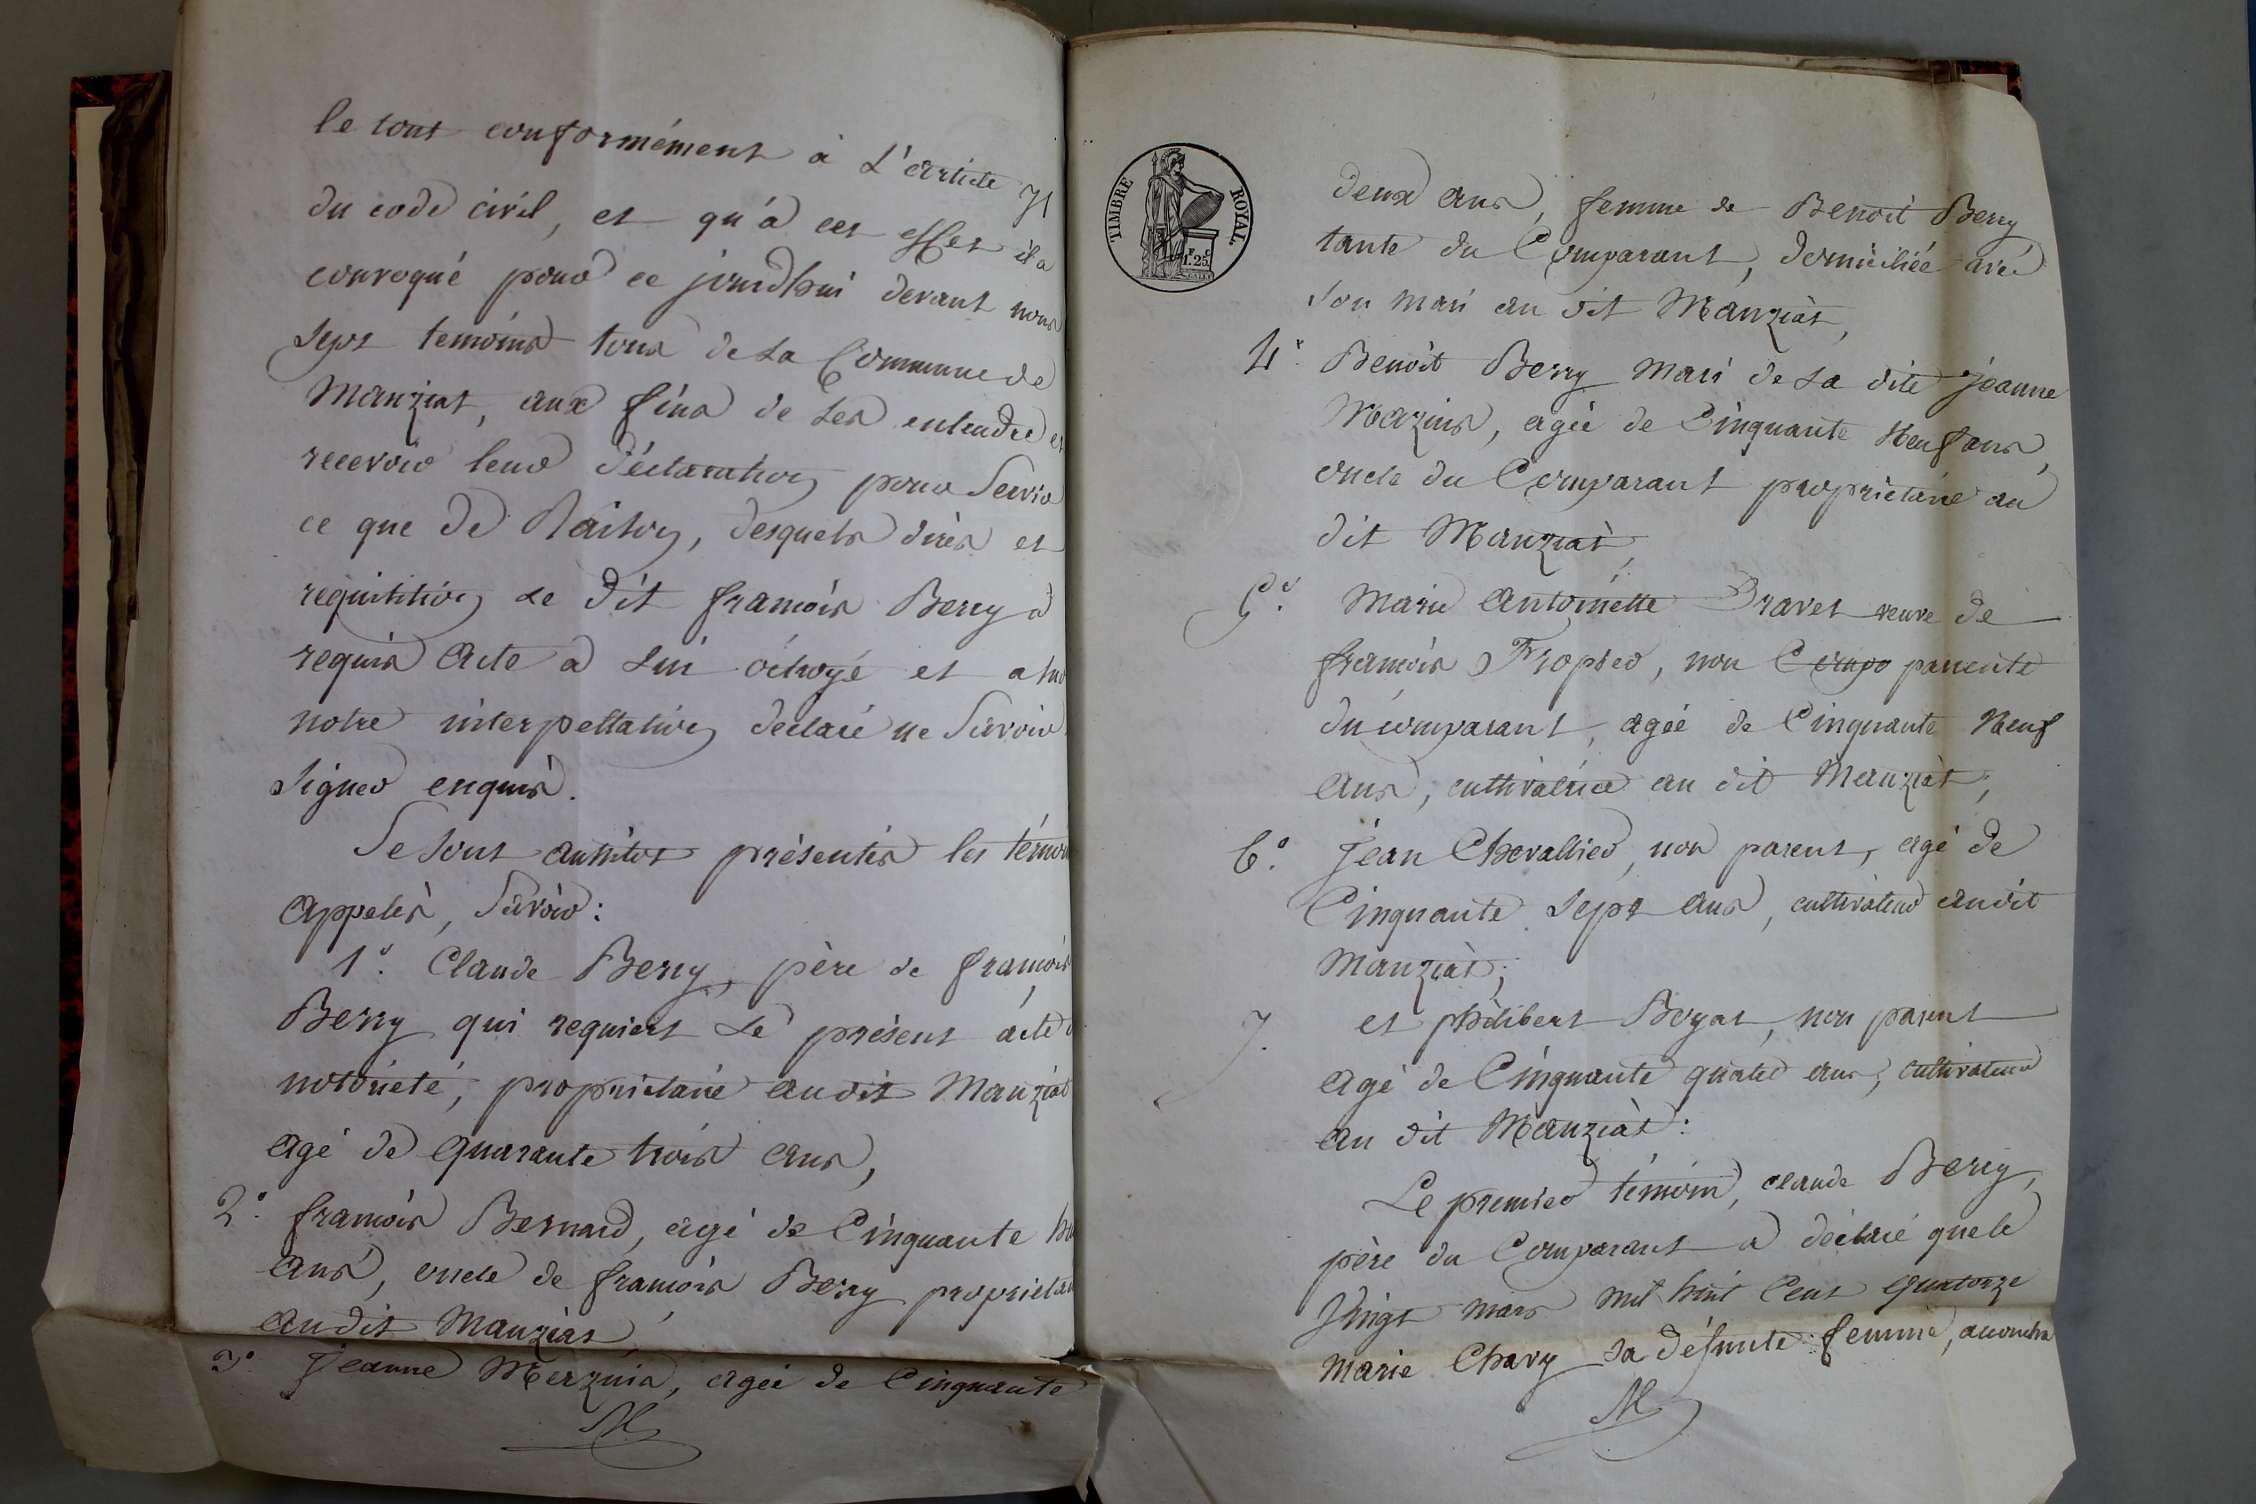 le tout conformément à L'article 71
du code civil, et qu'à cet effet il a
convoqué pour ce jourd'hui devant nous
sept temoins tous de la Commune de
Manziat, aux fins de les entendre et
recevoir leur déclaration pour Servir
ce que de Raison, desquels dires et
requisition le dit françois Berry a
requis Acte à lui octroyé et a sur
notre interpellation declaré ne Savoir
signer enquis.
Se sont aussitot présentés les témoins
appelés, Savoir:
1°. Claude Berry, père de françois
Berry qui requiert le présent acte
notoriété, propriétaire audit Manziat
agé de quarante trois ans,
2°. françois Bernard, agé de Cinquante
ans, oncle de françois Berry
audit Manziat,
3° Jeanne Mazuis, agée de Cinquante
TIMBRE ROYAL.
F. C.
1.25
deux ans, femme de Benoit Berry
tante du Comparant, domiciliée avec
son mari au dit Manziat,
4°. Benoit Berry mari de la dite Jeanne
Mazuis, agée de Cinquante Neuf ans,
oncle du Comparant propriétaire au
dit Manziat,
5°. Marie Antoinette Dravet veuve de
françois Tropier, non Compo parente
du comparant, agée de Cinquante Neuf
ans, cultivatrice au dit Manziat,
6°. Jean Chevallier, non parent, agé de
Cinquante sept ans, cultivateur audit
Manziat;
7. et philibert Boyat, non parent
agé de Cinquante quatre ans, cultivateur
au dit Manziat:
Le premier témoin, claude Berry,
père du Comparant a déclaré que le
Vingt mars mil huit Cent quatorze
Marie Chavy sa défunte femme, accoucha